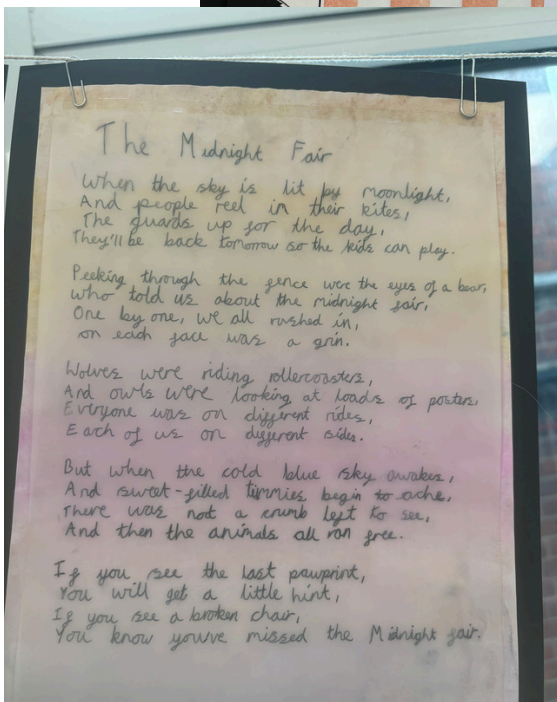 The Midnight Fair
When the sky is lit by moonlight,
And people reel in their kites,
The guards up for the day,
They'll be back tomorrow so the kids can play.
Peeking through the fence were the eyes of a bear,
who told us about the midnight fair,
One by one, we all rushed in,
on each face was a grin.
Wolves were riding rollercoasters,
And owls were looking at loads of posters,
Everyone was on different rides,
Each of us on different sides.
But when the cold blue sky awakes,
And sweet-filled tummies begin to ache,
There was not a crumb left to see,
And then the animals all ran free.
If you see the last pawprint,
You will get a little hint,
If you see a broken chair,
You know youve missed the Midnight fair.